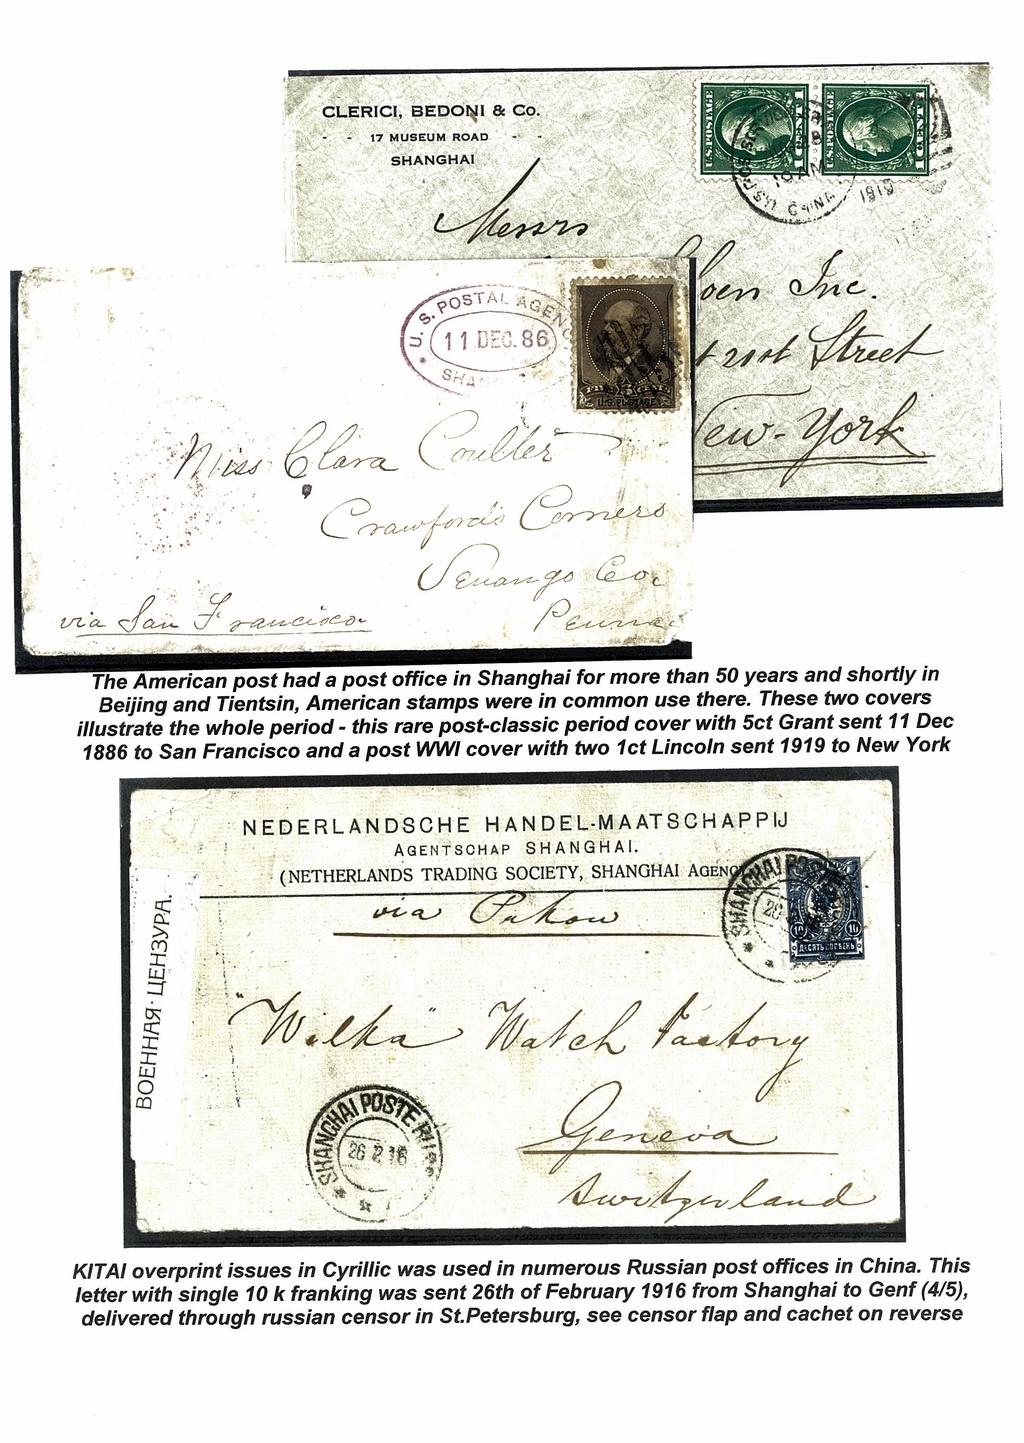 CLERICI, BEDONI & Co.
- - 17 MUSEUM ROAD - -
SHANGHAI
U.S. POSTAGE 1 CENT 1
U.S. POSTAGE 1 CENT 1
10 AM
CHINA
1919
Messrs
Inc.
21st Street
New-York
U. S. POSTAL AGENC
11 DEC. 86
SHAN
U.S. POSTAGE
Miss Clara Coulter
Crawford's Corners
Venango Co.
Penna
via San Francisco
The American post had a post office in Shanghai for more than 50 years and shortly in
Beijing and Tientsin, American stamps were in common use there. These two covers
illustrate the whole period - this rare post-classic period cover with 5ct Grant sent 11 Dec
1886 to San Francisco and a post WWI cover with two 1ct Lincoln sent 1919 to New York
NEDERLANDSCHE HANDEL-MAATSCHAPPIJ
AGENTSCHAP SHANGHAI.
(NETHERLANDS TRADING SOCIETY, SHANGHAI AGENC
via Pukow
SHANGHAI POSTE
10 10
ДЕСЯТЬ КОПѢЕКЪ
ВОЕННАЯ · ЦЕНЗУРА.
"Wilka" Watch factory
Geneva
Switzerland
SHANGHAI POSTE RUSS
26 2 16
KITAI overprint issues in Cyrillic was used in numerous Russian post offices in China. This
letter with single 10 k franking was sent 26th of February 1916 from Shanghai to Genf (4/5),
delivered through russian censor in St.Petersburg, see censor flap and cachet on reverse